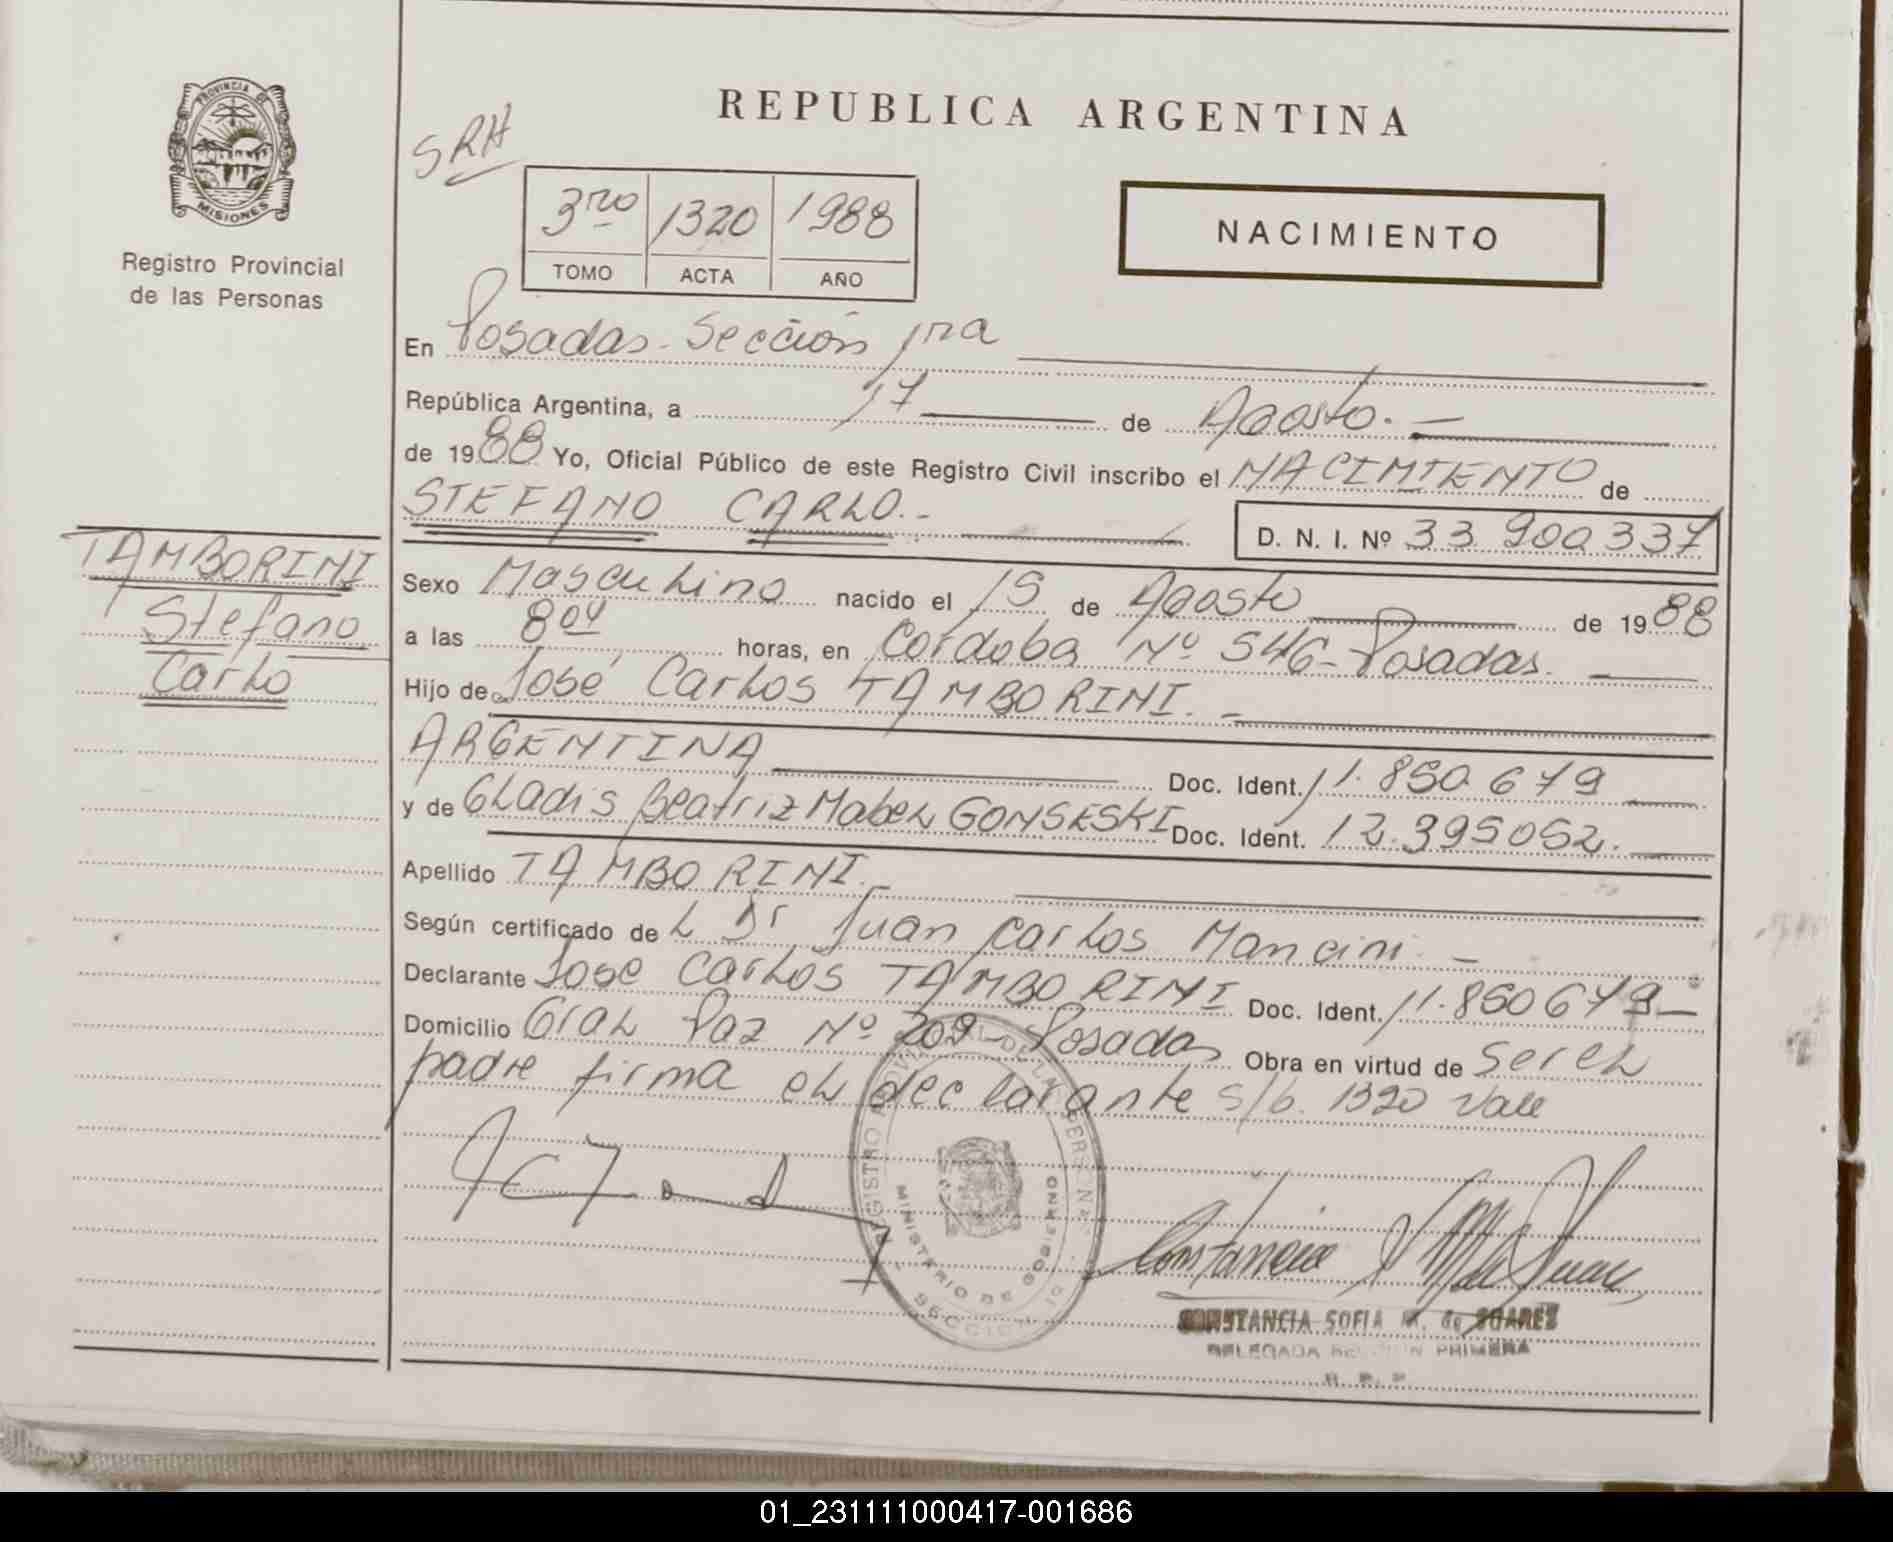 PROVINCIA DE
MISIONES
Registro Provincial
de las Personas
TAMBORINI
Stefano
Carlo
REPUBLICA ARGENTINA
SRH
3ro 1320 1988
TOMO ACTA AÑO
NACIMIENTO
En Posadas - Sección 1ra
República Argentina, a 17 de Agosto. -
de 1988 Yo, Oficial Público de este Registro Civil inscribo el NACIMIENTO de
STEFANO CARLO. -
D. N. I. Nº 33 900 337
Sexo Masculino nacido el 15 de Agosto de 1988
a las 8 04 horas, en Cordoba Nº 546 - Posadas.
Hijo de José Carlos TAMBORINI. -
ARGENTINA Doc. Ident. 11.850.679
y de Gladis Beatriz Mabel GONSESKI Doc. Ident. 12.395052.
Apellido TAMBORINI. -
Según certificado de L Dr Juan Carlos Mancini. -
Declarante Jose Carlos TAMBORINI Doc. Ident. 11.850679 -
Domicilio Gral Paz Nº 209 - Posadas Obra en virtud de Ser el
padre firma el declarante S/b. 1320 Vale
REGISTRO PROVINCIAL DE LAS PERSONAS
MINISTERIO DE GOBIERNO
SECCION 1a
CONSTANCIA SOFIA M. de SUAREZ
DELEGADA SECCION PRIMERA
R. P. P
01_231111000417-001686